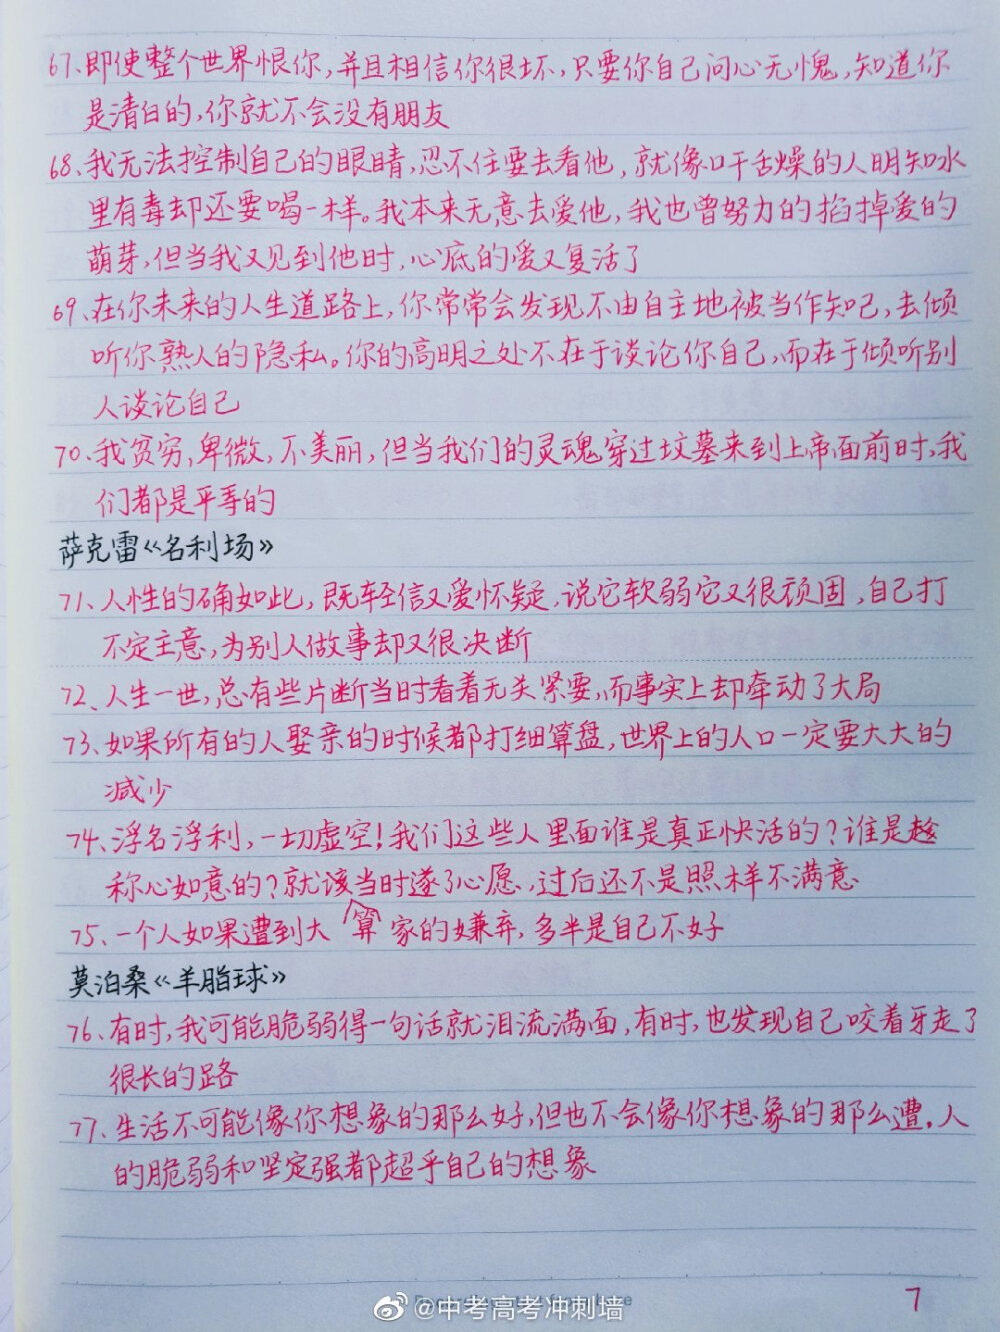 67、即使整个世界恨你，并且相信你很坏，只要你自己问心无愧，知道你
是清白的，你就不会没有朋友
68、我无法控制自己的眼睛，忍不住要去看他，就像口干舌燥的人明知水
里有毒却还要喝一样。我本来无意去爱他，我也曾努力的掐掉爱的
萌芽，但当我又见到他时，心底的爱又复活了
69、在你未来的人生道路上，你常常会发现不由自主地被当作知己，去倾
听你熟人的隐私。你的高明之处不在于谈论你自己，而在于倾听别
人谈论自己
70、我贫穷，卑微，不美丽，但当我们的灵魂穿过坟墓来到上帝面前时，我
们都是平等的
萨克雷《名利场》
71、人性的确如此，既轻信又爱怀疑，说它软弱它又很顽固，自己打
不定主意，为别人做事却又很决断
72、人生一世，总有些片断当时看着无关紧要，而事实上却牵动了大局
73、如果所有的人娶亲的时候都打细算盘，世界上的人口一定要大大的
减少
74、浮名浮利，一切虚空！我们这些人里面谁是真正快活的？谁是趁
称心如意的？就该当时遂了心愿，过后还不是照样不满意
75、一个人如果遭到大算家的嫌弃，多半是自己不好
莫泊桑《羊脂球》
76、有时，我可能脆弱得一句话就泪流满面，有时，也发现自己咬着牙走了
很长的路
77、生活不可能像你想象的那么好，但也不会像你想象的那么遭。人
的脆弱和坚定强都超乎自己的想象
@中考高考冲刺墙
7